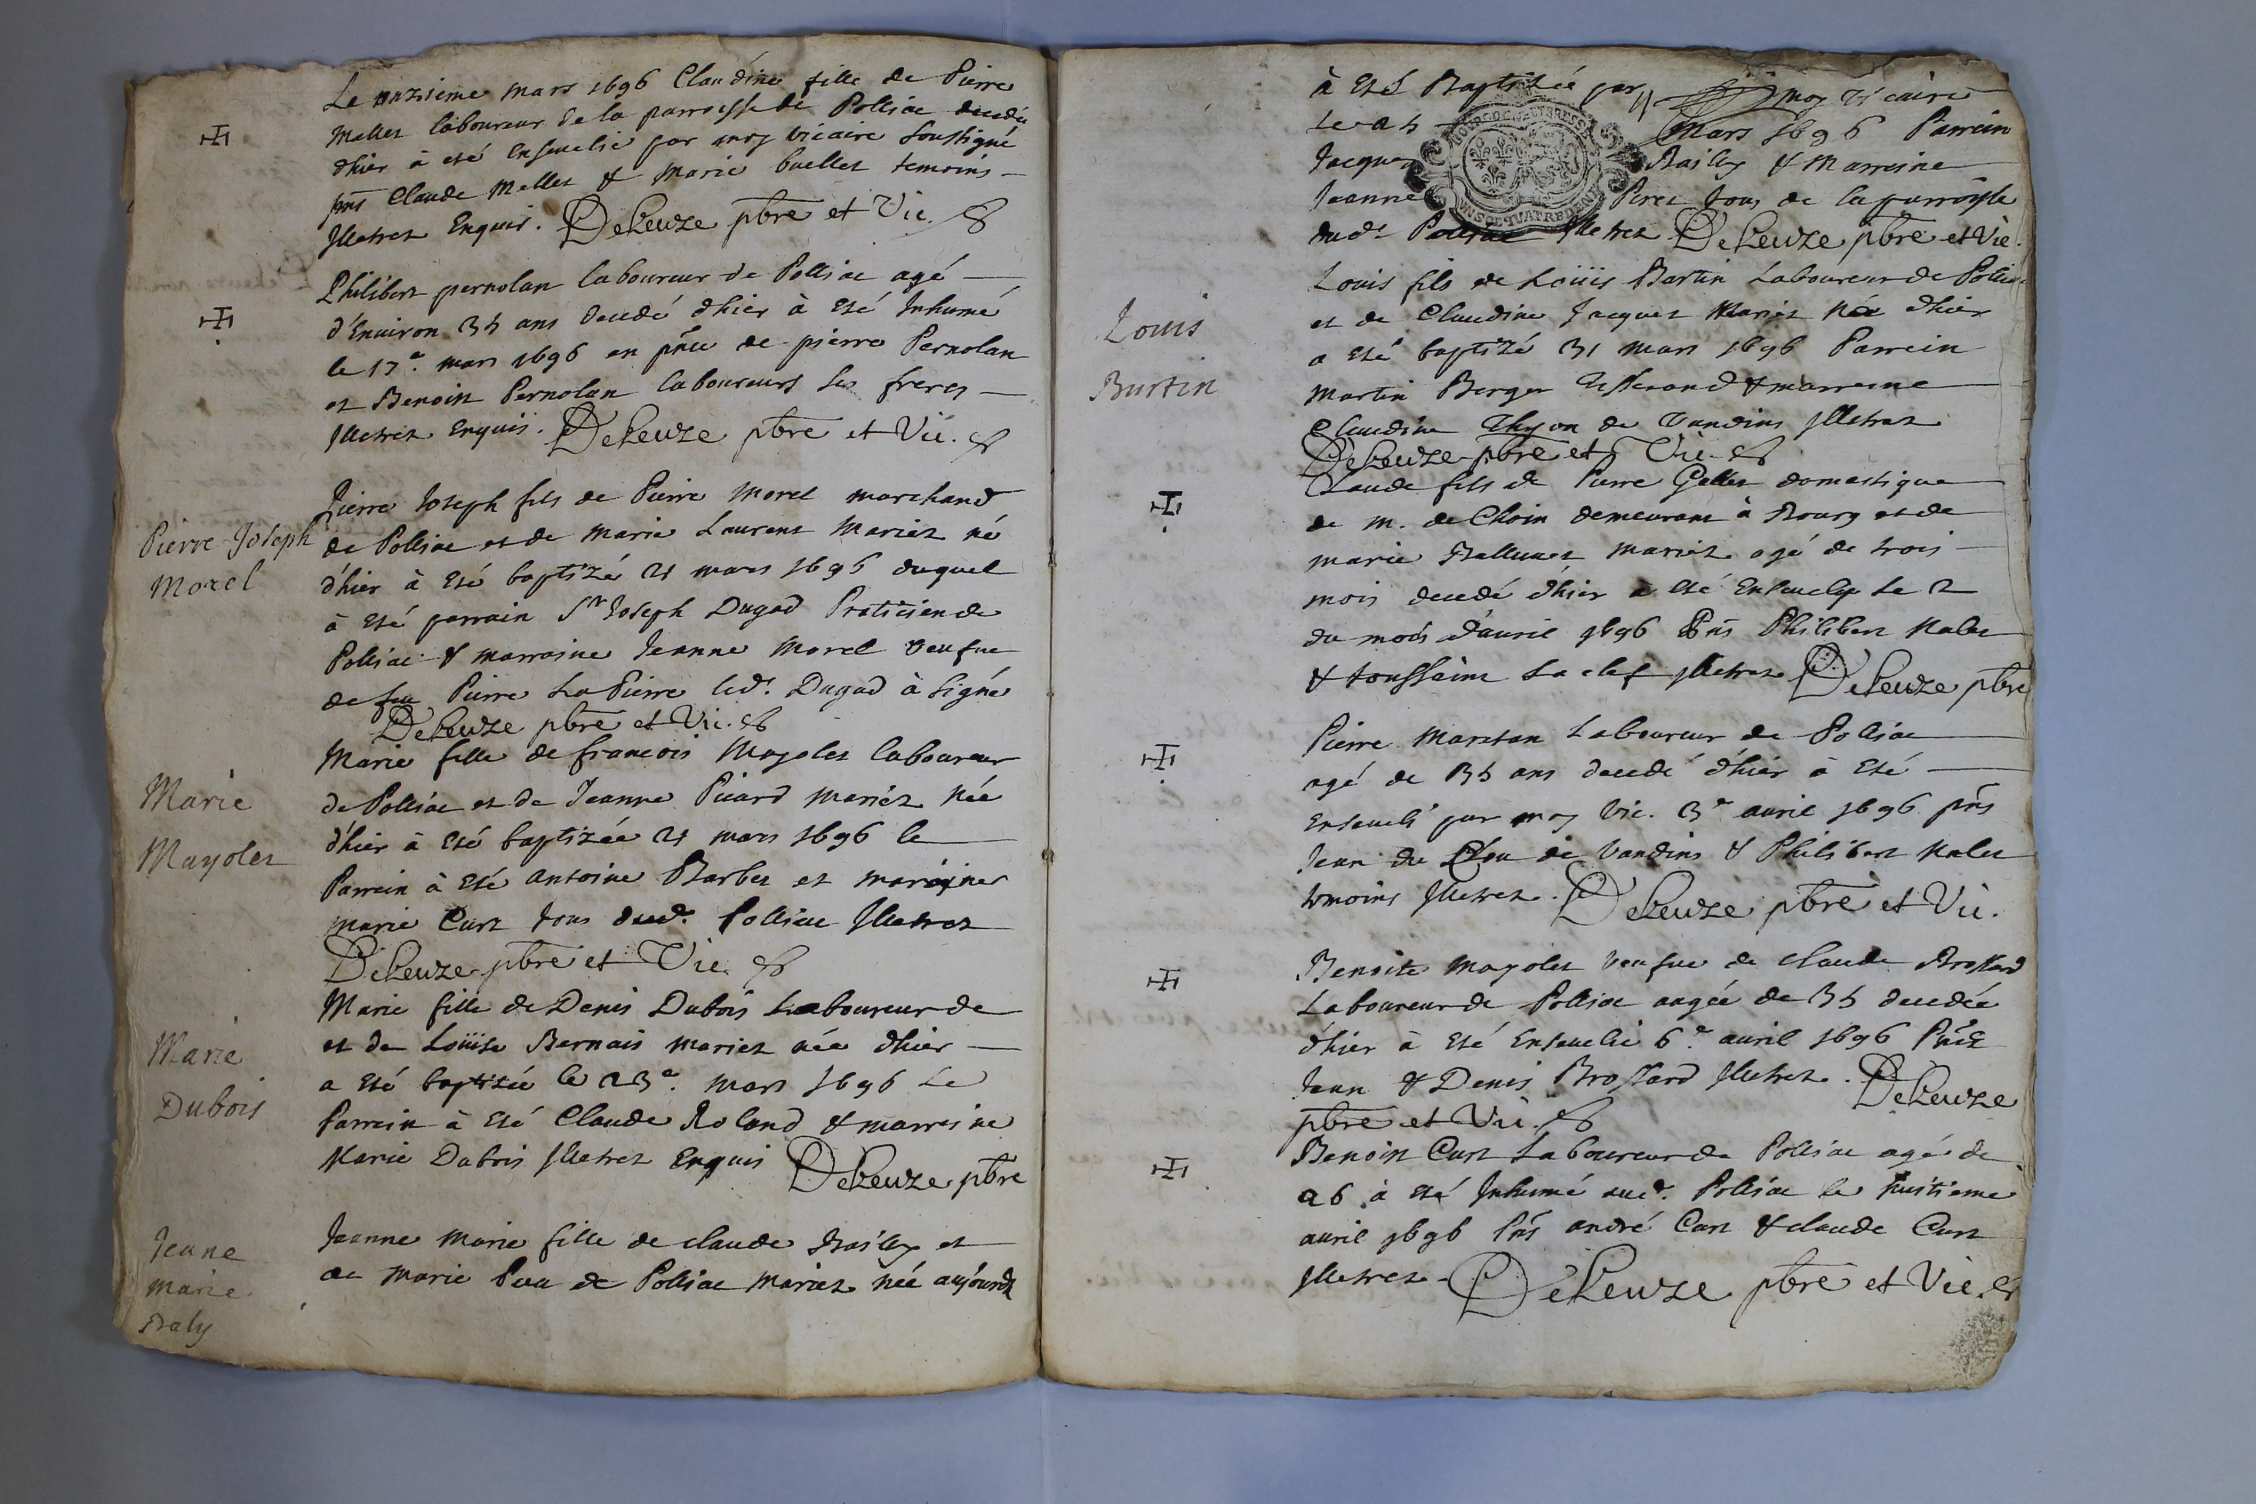 Le onzrieme mars 1696 Claudine fille de Pierre
Mallet laboureur de la parroisse de Polliac decedée
dhier à esté ensevelie par moy vicaire soussigné
pñts Claude Mallet & Marie buellet temoins
Illetrez Enquis. DeLeuze pbre et Vic.
Philibert pernolan laboureur de Polliac agé
d'Environ 35 ans decedé dhier à Esté Inhumé
le 17e. mars 1696 en pñce de pierre Pernolan
et Benoist Pernolan laboureurs ses freres
Illetrez Enquis. DeLeuze pbre et Vic.
Pierre Joseph
Morel
Pierre Joseph fils de Pierre Morel marchand
de Polliac et de Marie Laurent Mariez né
d'hier à Esté baptizé 21 mars 1696 duquel
à Esté parrain Sr Joseph Dugad Praticien de
Polliac & marraine Jeanne Morel veufue
de feu Pierre La Pierre led. Dugad à signé
DeLeuze pbre et Vic.
Marie
Mayolet
Marie fille de francois Mayolet laboureur
de Polliac et de Jeanne Picard mariez née
d'hier à esté baptizée 21 mars 1696 le
Parrein à Esté antoine Barbet et mareine
marie Curt tous dud. Polliac Illetrez
DeLeuze pbre et Vic.
Marie
Dubois
Marie fille de Denis Dubois Laboureur de
et de Loüise Bernais mariez née dhier
a Esté baptisée le 23e. mars 1696 Le
Parrein à Esté Claude Roland & marreine
Marie Dubois Illetrez Enquis DeLeuze pbre
Jeane
marie
Baly
Jeanne Marie fille de claude Bailly et
de Marie Peu de Polliac mariez née aujourd
à Esté Baptisée par moy Vicaire
Le 25 mars 1696 Parrein
Jacques Bailly & Marreine
Jeanne Peret tous de la parroisse
dud. Polliac Illetrez DeLeuze pbre et Vic.
Louis
Burtin
Louis fils de Loüis Bartin Laboureur de Polliac
et de Claudine Jacquet Mariez Né dhier
a Esté baptizé 31 mars 1696 Parrein
Martin Berger Tisserand & marreine
Claudine Thyon de Vandins Illetrez
DeLeuze pbre et Vic.
Claude fils de Pierre Gallet domestique
de M. de Choin demeurant à Bourg et de
marie Balluet mariez agé de trois
mois decedé dhier a Esté Ensevely le 2
du mois d'auril 1696 Pñts Philibert Nalet
& toussaint La clef Illetrez DeLeuze pbre
Pierre Maritan Laboureur de Polliac
agé de 35 ans decedé d'hier à Esté
Enseveli par moy Vic. 3e auril 1696 pñts
Jean du Clou de Vandins & Philibert Nalet
temoins Illetrez. DeLeuze pbre et Vic.
Benoite Mayolet veufue de claude Brossard
Laboureur de Polliac aagée de 35 decedée
d'hier à Esté Ensevelie 6e. auril 1696 Pñts
Jean & Denis Brossard Illetrez. DeLeuze
pbre et Vic.
Benoist Curt Laboureur de Polliac agé de
26 à Esté Inhumé aud. Polliac le huitieme
auril 1696 Pñts andré Curt & claude Curt
Illetrez. DeLeuze pbre et Vic.